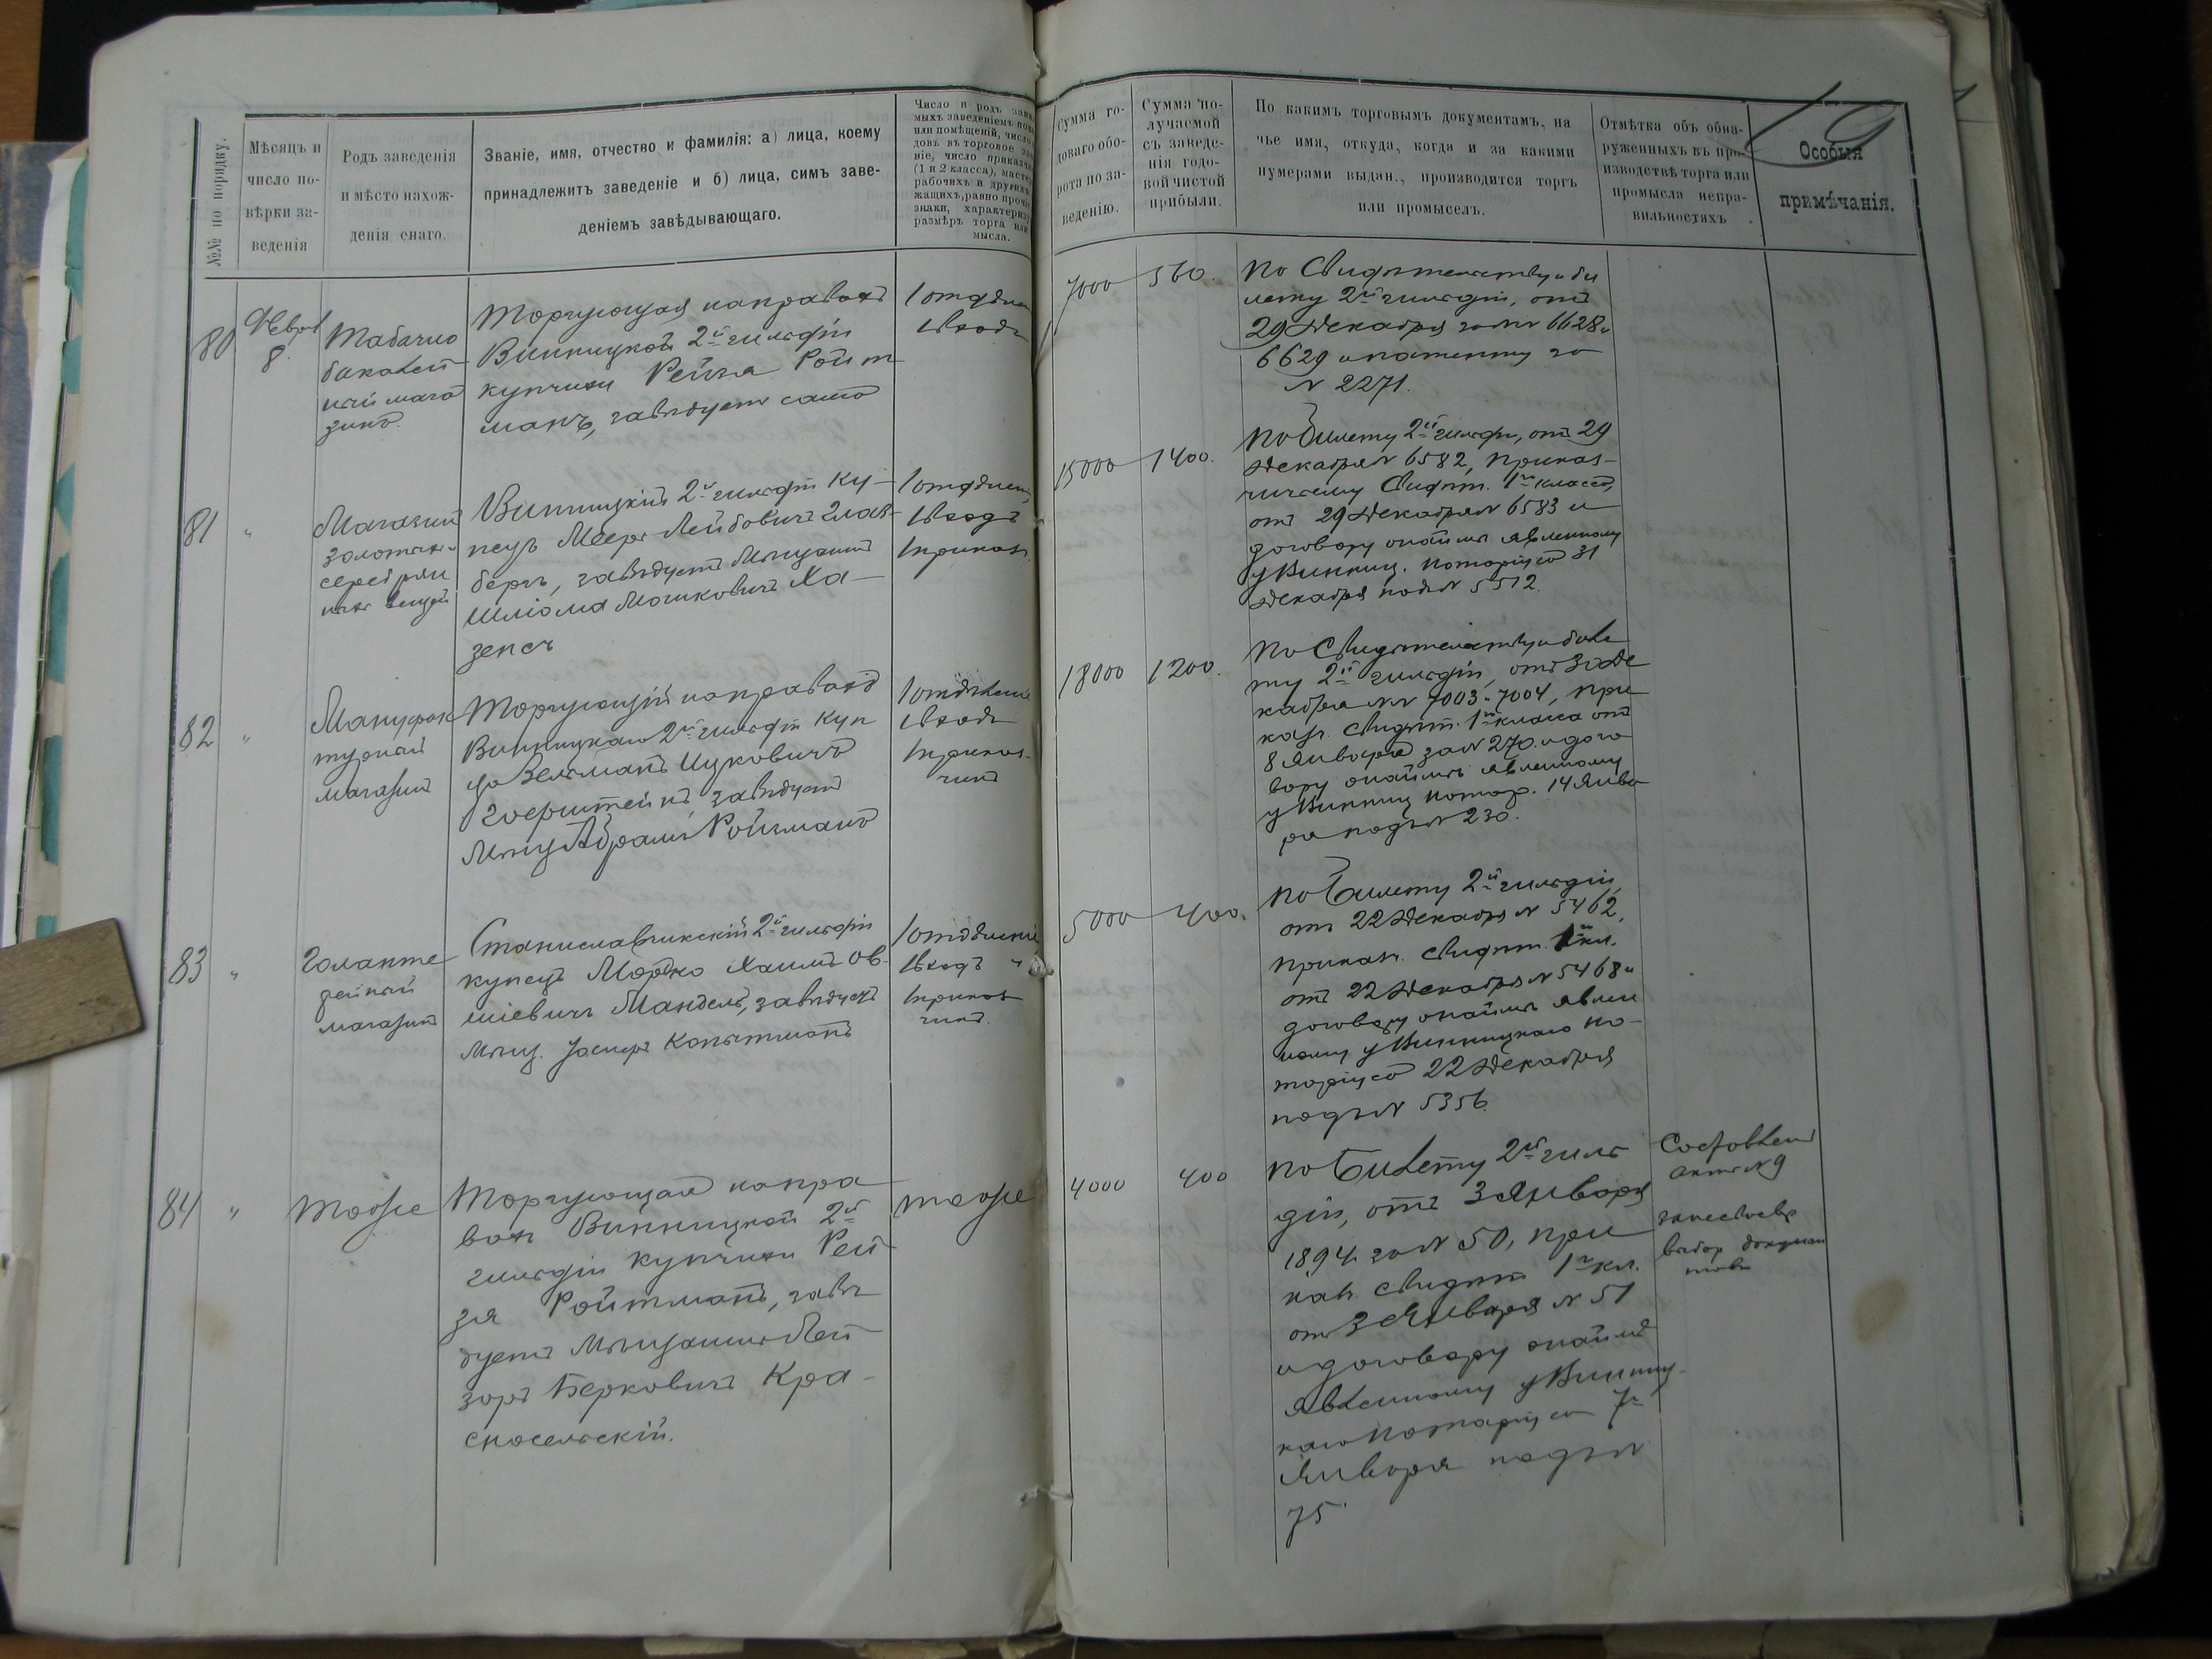 19
№№ по порядку.
Мѣсяцъ и
число по-
вѣрки за-
веденія
Родъ заведенія
и мѣсто нахож-
денія онаго.
Званіе, имя, отчество и фамилія: а) лица, коему
принадлежитъ заведеніе и б) лица, симъ заве-
деніемъ завѣдывающаго.
Число и родъ зани
мыхъ заведеніемъ
или помѣщеній, число
довъ въ торговое
ніе, число приказ
(1 и 2 класса), маст
рабочихъ и другихъ
жащихъ, равно проч
знаки, характериз
размѣръ торга или
мысла.
Сумма го-
доваго обо-
рота по за-
веденію.
Сумма по-
лучаемой
съ заведе-
нія годо-
вой чистой
прибыли.
По какимъ торговымъ документамъ, на
чье имя, откуда, когда и за какими
нумерами выдан., производится торгъ
или промыселъ.
Отмѣтка объ обна-
руженныхъ въ про-
изводствѣ торга или
промысла непра-
вильностяхъ
Особыя
примѣчанія.
80
8.
Табачно
бакалей
ный мага
зинъ.
Торгующая на правахъ
Винницкой 2й гильдіи
купчихи Рейзя Ройт
манъ, завѣдуетъ сама
1 отдѣлен
1 входъ
7000
560.
По Свидѣтельству и би
лету 2й гильдіи, отъ
29 Декабря за №№ 6628 и
6629 и патенту за
№ 2271.
81
"
Магазинъ
золотых и
серебрян
ных вещей
Винницкій 2й гильдіи ку-
пецъ Меер Лейбовичъ Глаз-
бергъ, завѣдуетъ Мѣщанинъ
Шліома Мошковичъ Ха-
зенъ
1 отдѣлен,
1 входъ
1 приказ.
15000
1400.
По билету 2й гильдіи, отъ 29
Декабря № 6582, приказ-
чичьему Свидѣт. 1го класса,
отъ 29 Декабря № 6583 и
договору о наймѣ явленному
у Винниц. нотаріуса 31
Декабря подъ № 5512.
82
"
Мануфак
турный
магазинъ
Торгующій на правахъ
Винницкаго 2й гильдіи куп
ца Зельманъ Ицковичъ
завѣдуетъ
Мѣщ Абрамъ Ройтманъ
1 отдѣленіе
1 входъ
1 приказ-
чикъ
18000
1200.
По Свидѣтельству и биле
ту 2й гильдіи, отъ 30 Де
кабря №№ 7003-7004, при
каз. Свидѣт. 1го класса отъ
8 Января за № 270. и дого
вору о наймѣ явленному
у Винниц нотар. 14 Янва
ря подъ № 230.
83
"
Галанте
рейный
магазинъ
Станиславчикскій 2й гильдіи
купецъ Мордко Хаимъ Ов-
шіевичъ Мандель, завѣдуетъ
Мѣщ.
1 отдѣленіе
1 входъ "
1 приказ
чикъ.
5000
400.
По билету 2й гильдіи,
отъ 22 Декабря № 5462,
приказ. Свидѣт. 1го кл.
отъ 22 Декабря № 5468 и
договору о наймѣ явлен
ному у Винницкаго но-
таріуса 22 Декабря
подъ № 5356.
84
"
Тоже
Торгующая на пра
вахъ Винницкой 2й
гильдіи купчихи Рей
зя Ройтманъ, завѣ
дуетъ Мѣщанинъ Лей
зоръ Берковичъ Кра-
сносельскій.
Тоже
4000
400
По билету 2й гиль
діи, отъ 3 Января
1894 за № 50, при
каз. Свидѣт 1го кл.
отъ 3 Января № 51
и договору о наймѣ
явленному у Винниц-
каго Нотаріуса 7го
Января подъ №
75.
Составленъ
актъ № 9
выбор докумен
товъ